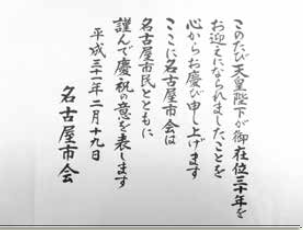 このたび天皇陛下が御在位三十年を
お迎えになられましたことを
心からお慶び申し上げます
ここに名古屋市会は
名古屋市民とともに
謹んで慶祝の意を表します
平成三十一年二月十九日
名古屋市会